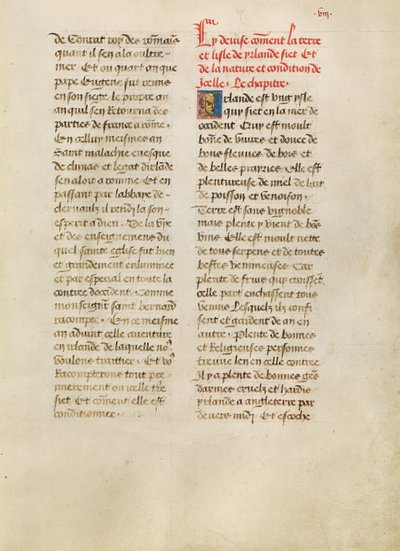 .viii.
de Conrat roy des romains
quant il sen ala oultre
mer. Et ou quart an que
pape Eugene fut remis
en son siege. le premier an
an quil sen Retourna des
parties de france a rome.
En celluy mesmes an
saint malachie euesque
et legat dirlande
sen aloit a romme. Et en
passant par labbaye de
cleruaulx il rendi la son
esperit a dieu. De la vye
et des enseignemens du
quel sainte eglise fut bien
et grandement enluminee
et par especial en toute la
contree doccident. Comme
monseignr saint bernard
racompte. En ce mesme
an aduint celle auenture
en irlande de laquelle noꝰ
voulons traittier. Et voꝰ
Racompterons tout pre
mierement ou celle ter
siet. Et coment elle est
conditionnee
Cy deuise coment la terre
et lisle de yrlande siet. Et
de la nature et condicion de
Jcelle. Le chapitre.
Irlande est vng ysle
qui siet en la mer de
occident. Et est moult
bone de viures et doulce de
bons fleuues. de bois. et
de belles prayries. Elle est
plentureuse de miel de lait
de poisson et venoison.
Terre est sans vignoble
mais plente y vient de bos
vins. Elle est moult nette
de tous serpens et de toutes
bestes venimeuses. Car
plente de fruis qui croissēt
celle part enchassent tous
venins. Lesquelz ilz confi
sent et gardent de an en
autre. Plente de bonnes
et Religieuses personnes
treuue len en celle contree
Jl y a plente de bonnes gēs
darmes cruelz et hardis
yrlande a angleterre par
deuers midi. Et escoche